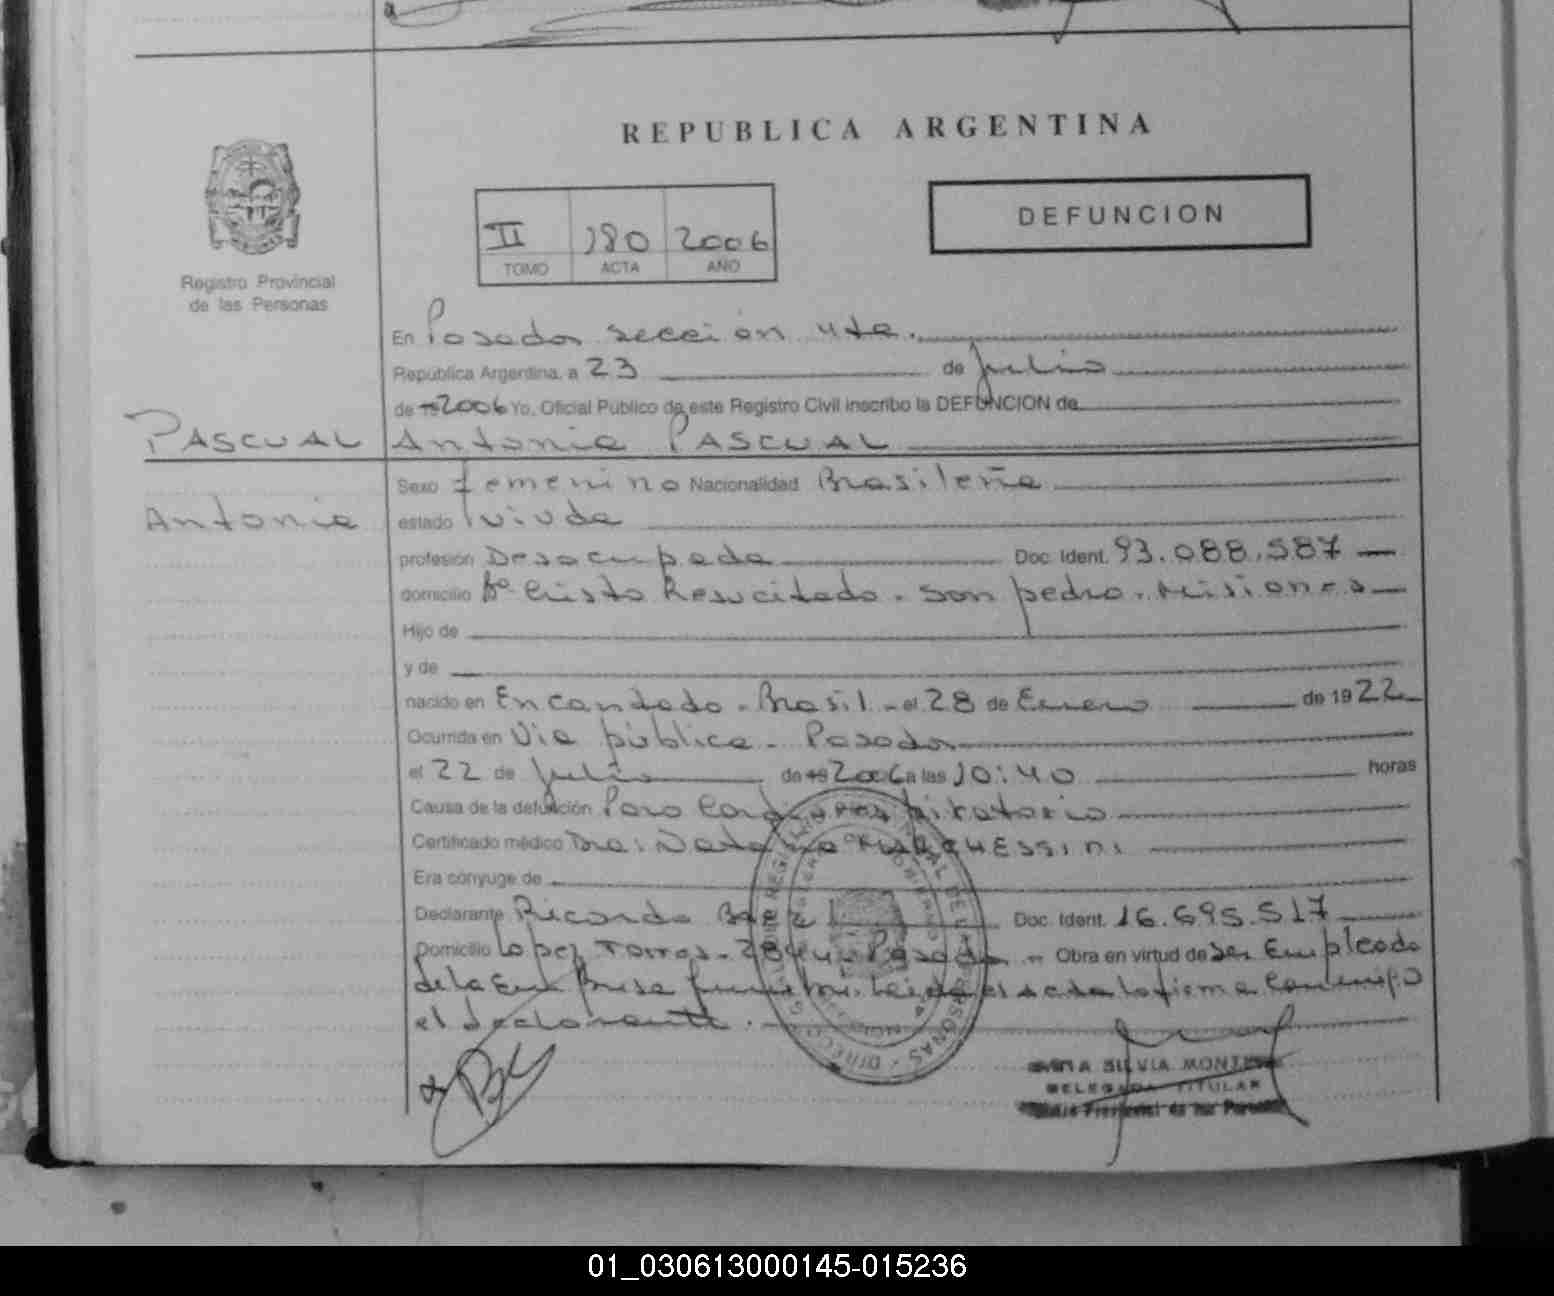 REPUBLICA ARGENTINA
DEFUNCION
II 180 2006
TOMO ACTA AÑO
Registro Provincial
de las Personas
En Posadas sección 4ta.
República Argentina, a 23 de Julio
de 19 2006 Yo, Oficial Público de este Registro Civil inscribo la DEFUNCION de
PASCUAL Antonia PASCUAL
Sexo femenino Nacionalidad Brasileña
Antonia estado viuda
profesión Desocupada Doc. Ident. 93.088.587
domicilio Bº Cristo Resucitado - San pedro - Misiones
Hijo de
y de
nacido en Encantado - Brasil - el 28 de Enero de 1922
Ocurrida en Via pública - Posadas
el 22 de Julio de 19 2006 a las 10:40 horas
Causa de la defunción Paro Cardiorespiratorio
Certificado médico Dra:
Era cónyuge de
Declarante Ricardo Baez Doc. Ident. 16.695.517
Domicilio Lopez Torres - Posadas - Obra en virtud de ser Empleado
de la Empresa funebre. Leida el acta la firma conmigo
el declarante.
SILVIA
DELEGADA TITULAR
01_030613000145-015236